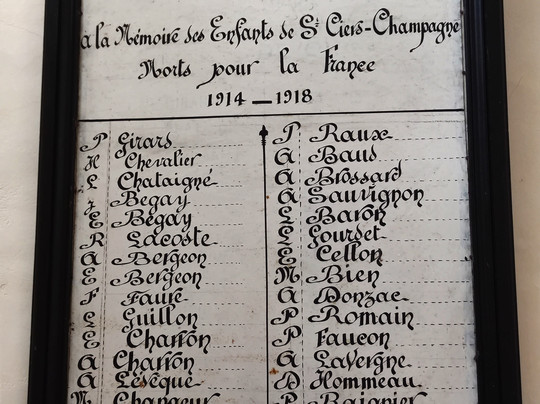 a la Mémoire des Enfants de St Ciers-Champagne
Morts pour la France
1914 — 1918
P Girard
H Chevalier
L Chataigné
Begay
E Bégay
R Lacoste
A Bergeon
E Bergeon
F Faure
L Guillon
E Charron
A Charron
A Lévèque
M Changeur
P Raux
A Baud
A Brossard
A Sauvignon
L Baron
L Gourdet
E Cellon
M Bien
A Donzac
P Romain
P Faucon
A Lavergne
D Hommeau
P Baignier